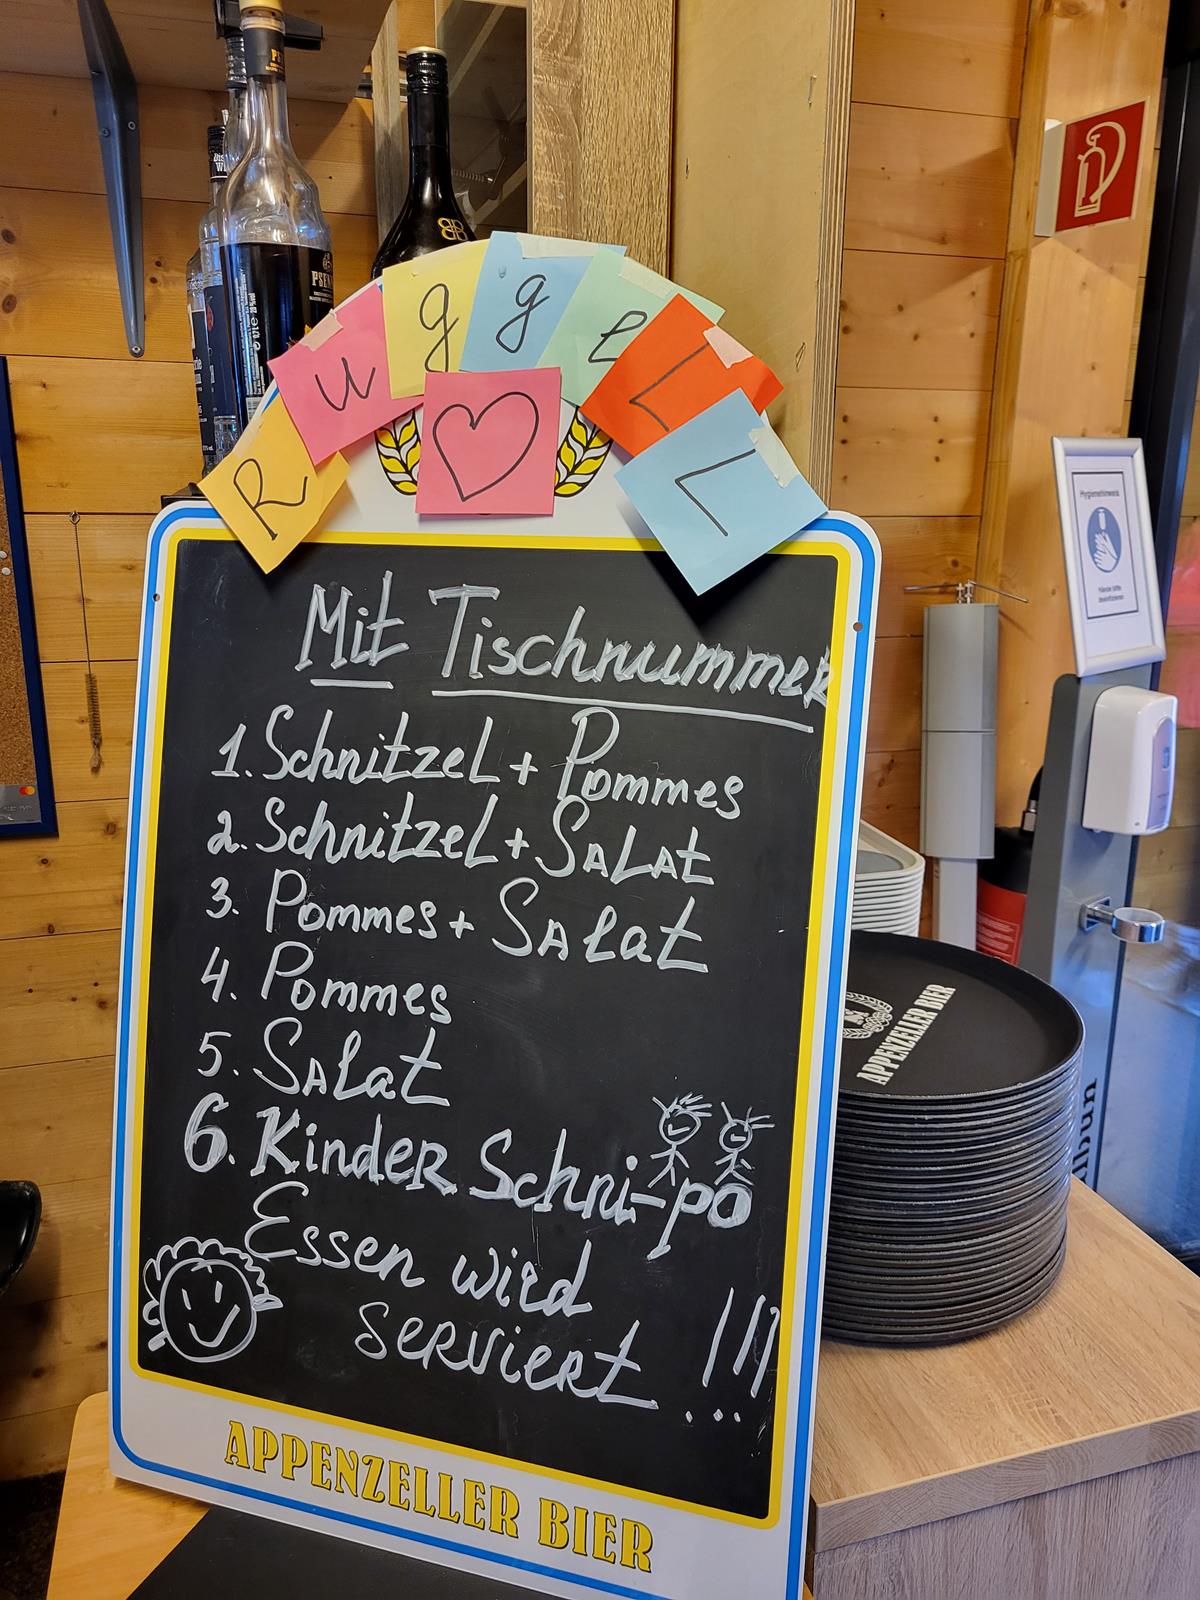 R u g g e L L
Mit Tischnummer
1. Schnitzel + Pommes
2. Schnitzel + Salat
3. Pommes + Salat
4. Pommes
5. Salat
6. Kinder Schni-po
Essen wird
serviert !!!
APPENZELLER BIER
APPENZELLER BIER
Hygienehinweis